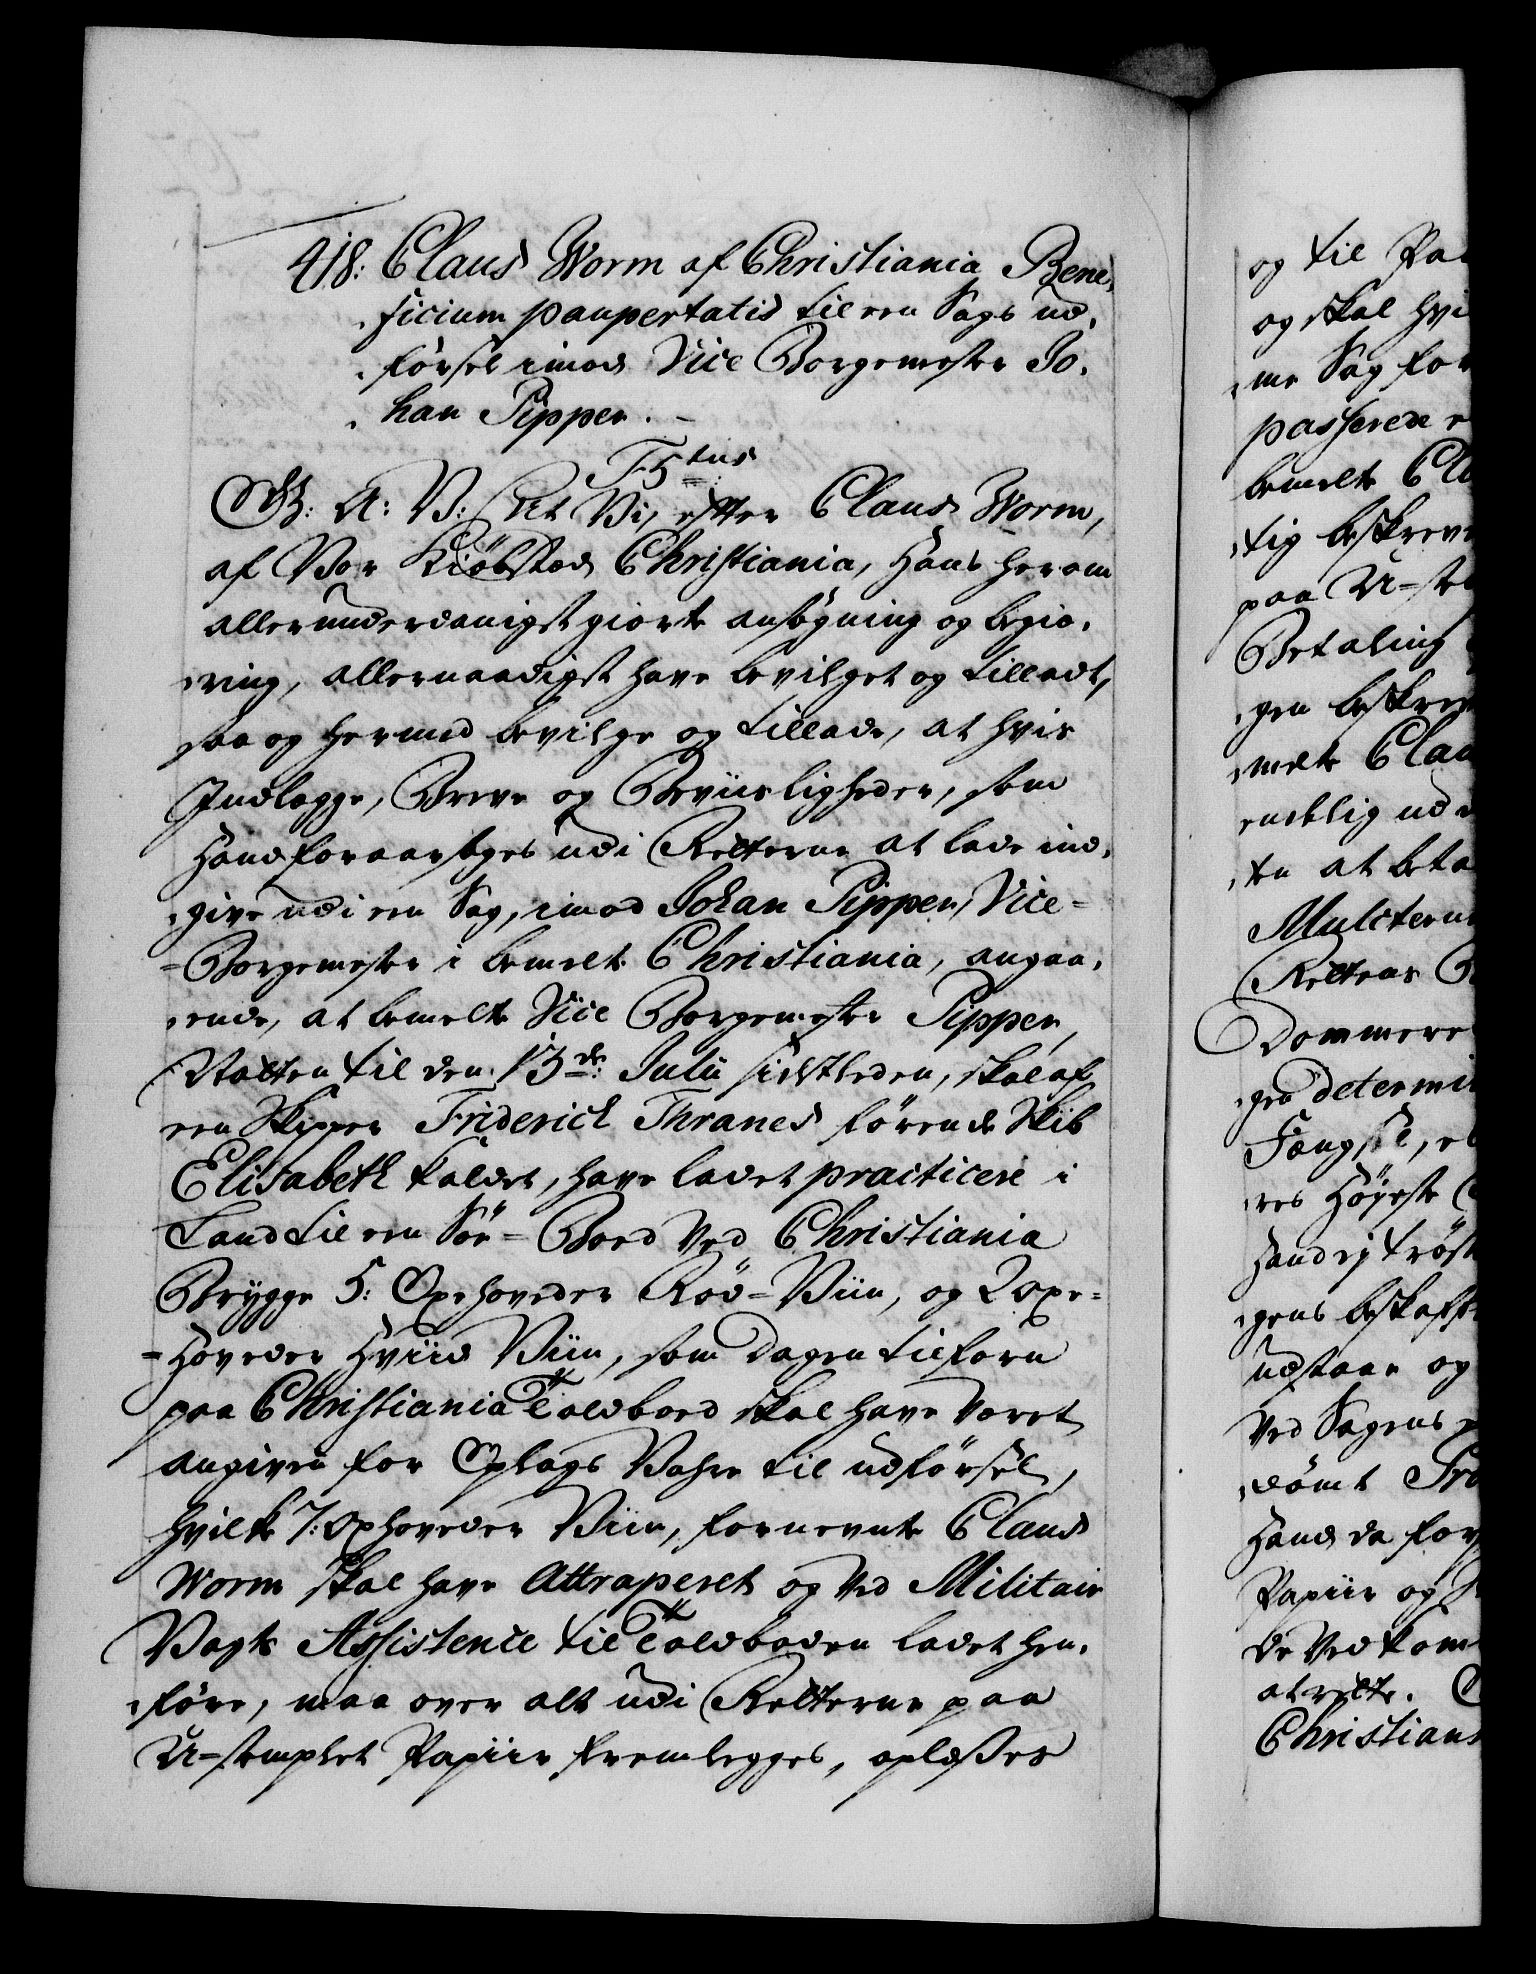 418: Claus Worm af Christiania Bene-
ficium paupertatis til een Sags ud-
førsel imod Vice Borgemester Jo-
han Pipper. -
F5tus
G: A: V: At Vi, efter Claus Worm,
af Vor Kiøbsted Christiania, Hans herom
allerunderdanigst giorte ansøgning og begie-
ring, allernaadigst have bevilget og tilladt,
saa og hermed bevilge og tillade, at hvis
Indlægge, Breve og Beviisligheder, som
Hand foraarsages udi Retterne at lade ind-
give udi een Sag, imod Johan Pipper, Vice-
-Borgemester i bemelte Christiania, angaa-
ende, at bemelte Vice Borgemester Pipper,
Natten til den 13de Julii sidstleden, skal af
een Skipper Friderich Thranes førende Skib
Elisabeth kaldet, have ladet practicere i
Land til een Søe-Boed ved Christiania
Brygge 5: Oxehoveder Rød-Viin, og 2 oxe-
-Hoveder Hviid Viin, som Dagen tilforn
paa Christiania Toldboed skal have været
angiven for Oplags Vahre til udførsel,
hvilke 7: Oxhoveder Viin, fornevnte Claus
Worm skal have Attraperet og ved Militair
Vagts Assistence til Toldboden ladet hen-
føre, maa over alt udi Retterne paa
U-stemplet Papiir fremlegges, oplæses
og til
og skal hvi
me Sag for
passerede
bemelte Cla
tig beskreve
paa U-ste
Betaling
gen beskrev
melte Clau
endelig ud
ten at beta
Mulcterne
Rettens
Dommere
ges determi
Fængsel,
res Høyeste
Hand ej trøst
gens beskaff
udstaae og
ved Sagens
dømt
Hand da for
Papiir og
de Vedkom
at rette.
Christians